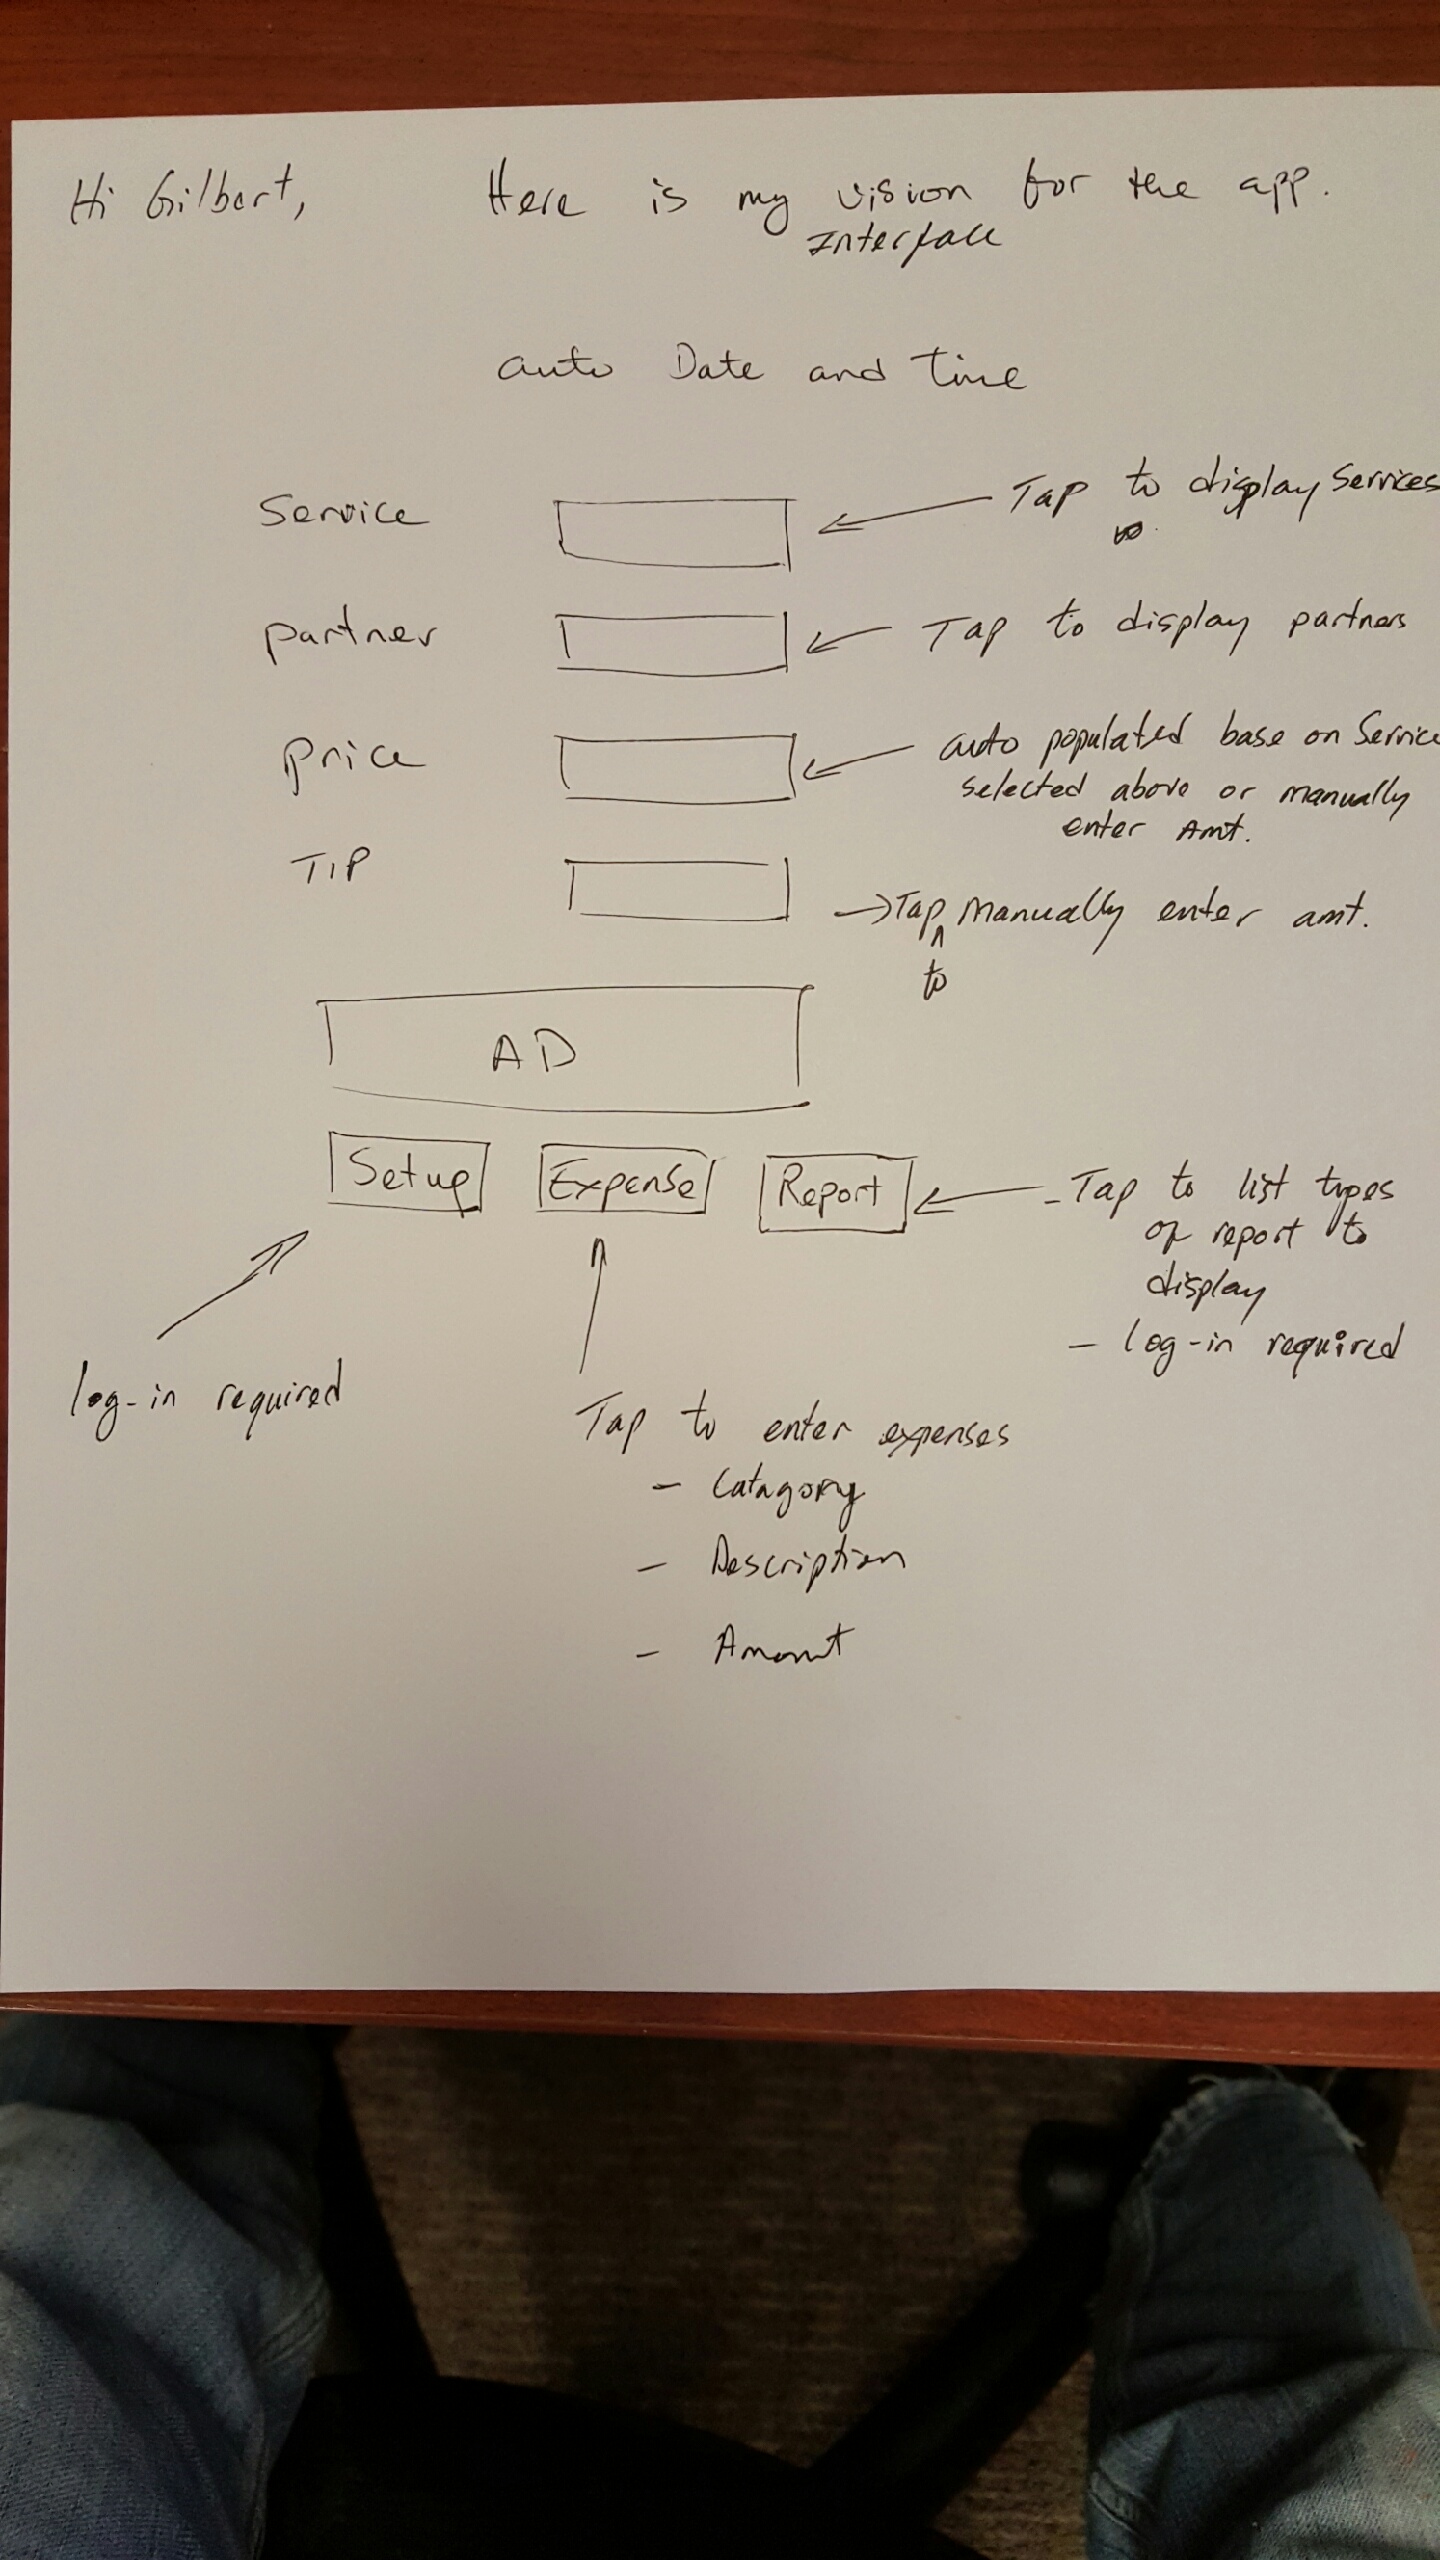 Hi Gilbert, Here is my vision for the app.
Interface
auto Date and Time
Service Tap to display Services
partner Tap to display partners
price auto populated base on Service
selected above or manually
enter Amt.
TIP Tap to manually enter amt.
AD
Setup Expense Report - Tap to list types
of report to
display
- log-in required
log-in required
Tap to enter expenses
- Catagory
- Description
- Amount